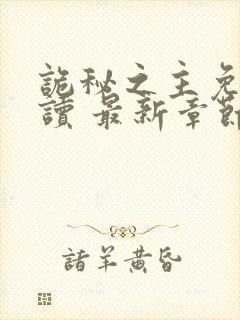 詭秘之主免
讀 最新章節
諸羊黃昏